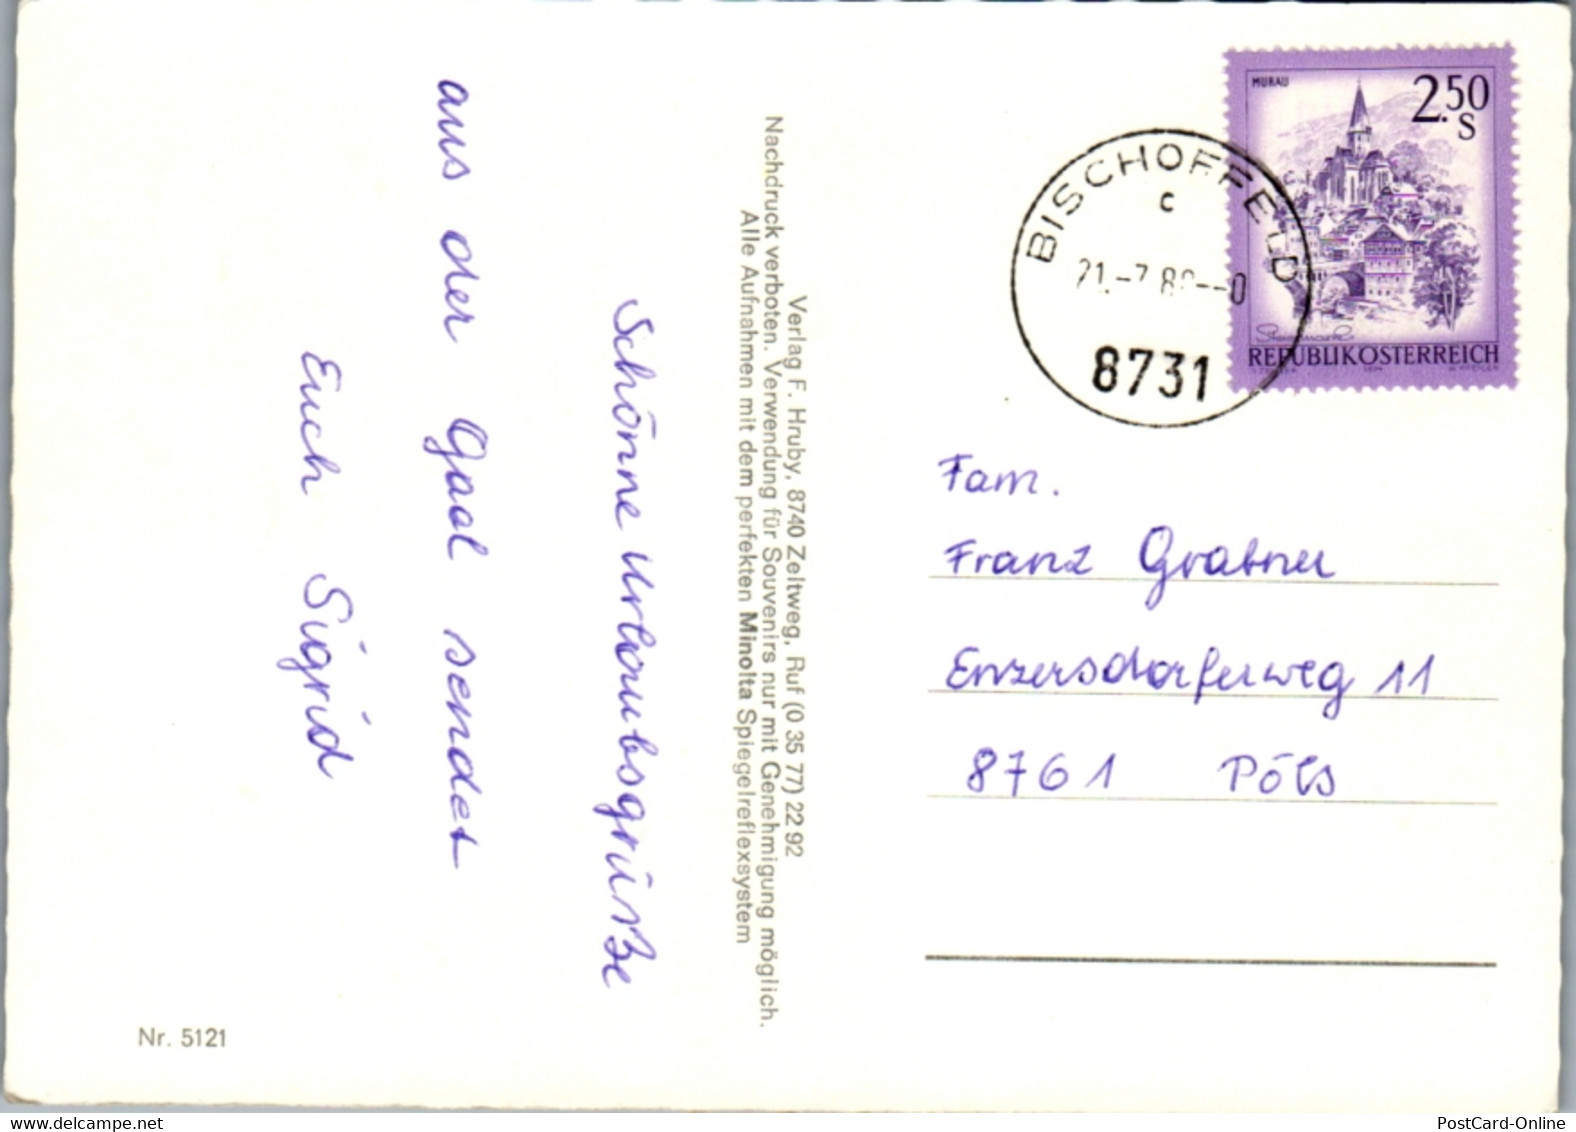 Schöne Urlaubsgrüße
aus der Gaal sendet
Euch Sigrid
Nr. 5121
Verlag F. Hruby, 8740 Zeltweg, Ruf (0 35 77) 22 92
Nachdruck verboten. Verwendung für Souvenirs nur mit Genehmigung möglich.
Alle Aufnahmen mit dem perfekten Minolta Spiegelreflexsystem
MURAU
2.50
S
REPUBLIK ÖSTERREICH
BISCHOFFELD
c
21.-7.8
8731
Fam.
Franz Grabner
Enzersdorferweg 11
8761 Pöls
PostCard-Online